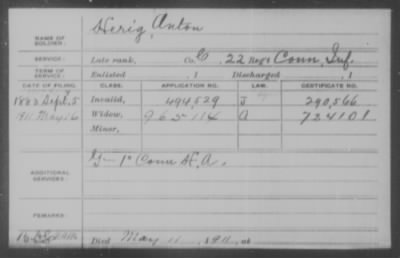 NAME OF SOLDIER: Herig, Anton
SERVICE: Late rank, Co. C, 22 Reg't Conn. Inf.
TERM OF SERVICE: Enlisted , 1 Discharged , 1
DATE OF FILING. CLASS. APPLICATION NO. LAW. CERTIFICATE NO.
1883 Sept. 5 Invalid, 494,529 J 290,566
1911 May 16 Widow, 965114 A 734101
Minor,
ADDITIONAL SERVICES: 1" Conn H. A.
REMARKS:
Died May 11, 1911, at